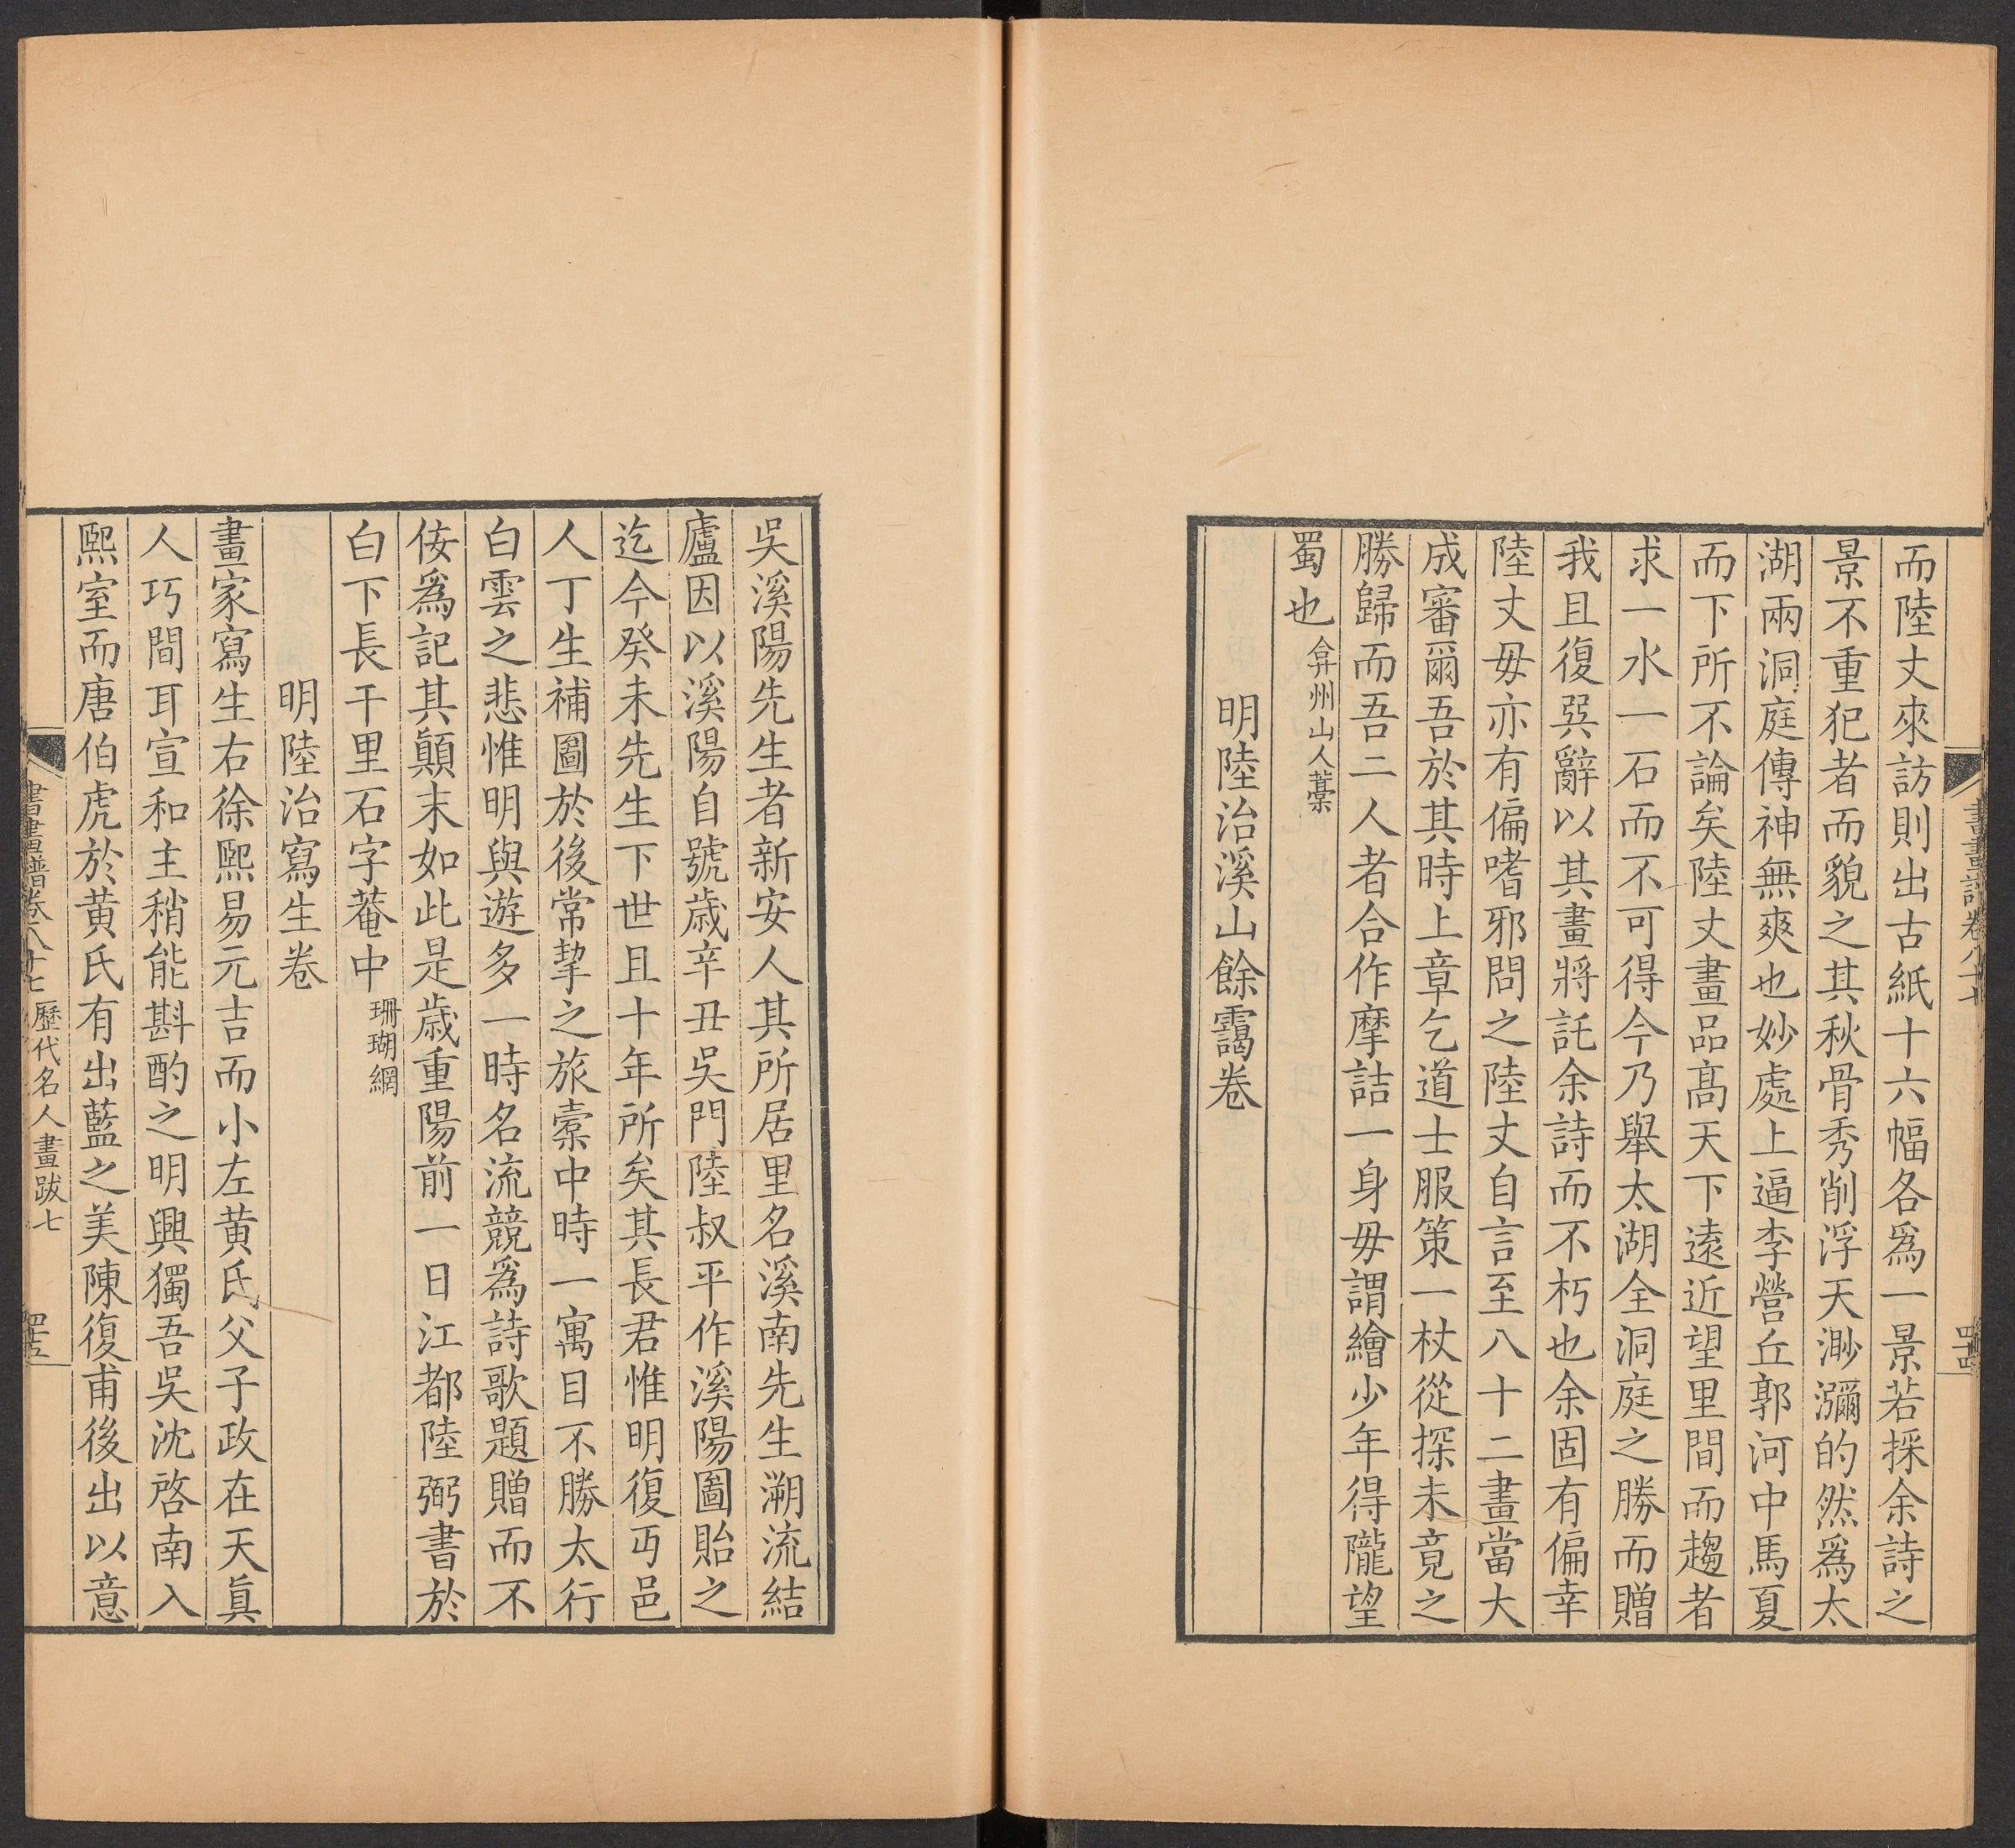 而陸丈來訪則出古紙十六幅各爲一景若採余詩之
景不重犯者而貌之其秋骨秀削浮天渺瀰的然爲太
湖兩洞庭傳神無爽也妙處上逼李營丘郭河中馬夏
而下所不論矣陸丈畫品髙天下遠近望里閭而趨者
求一水一石而不可得今乃舉太湖全洞庭之勝而贈
我且復㢲辭以其畫將託余詩而不朽也余固有偏幸
陸丈毋亦有偏嗜邪問之陸丈自言至八十二畫當大
成審爾吾於其時上章乞道士服策一杖從探未竟之
勝歸而吾二人者合作摩詰一身毋謂繪少年得隴望
蜀也弇州山人藁
明陸治溪山餘靄卷
吳溪陽先生者新安人其所居里名溪南先生溯流結
廬因以溪陽自號歲辛丑吳門陸叔平作溪陽圖貽之
迄今癸未先生下世且十年所矣其長君惟明復丐邑
人丁生補圖於後常挈之旅橐中時一寓目不勝太行
白雲之悲惟明與遊多一時名流競爲詩歌題贈而不
佞爲記其顛末如此是歲重陽前一日江都陸弼書於
白下長干里石字菴中珊瑚網
明陸治寫生卷
畫家寫生右徐熙易元吉而小左黄氏父子政在天眞
人巧間耳宣和主稍能斟酌之明興獨吾吳沈啓南入
熙室而唐伯虎於黄氏有出藍之美陳復甫後出以意
書畫譜卷八十七 歷代名人畫跋七